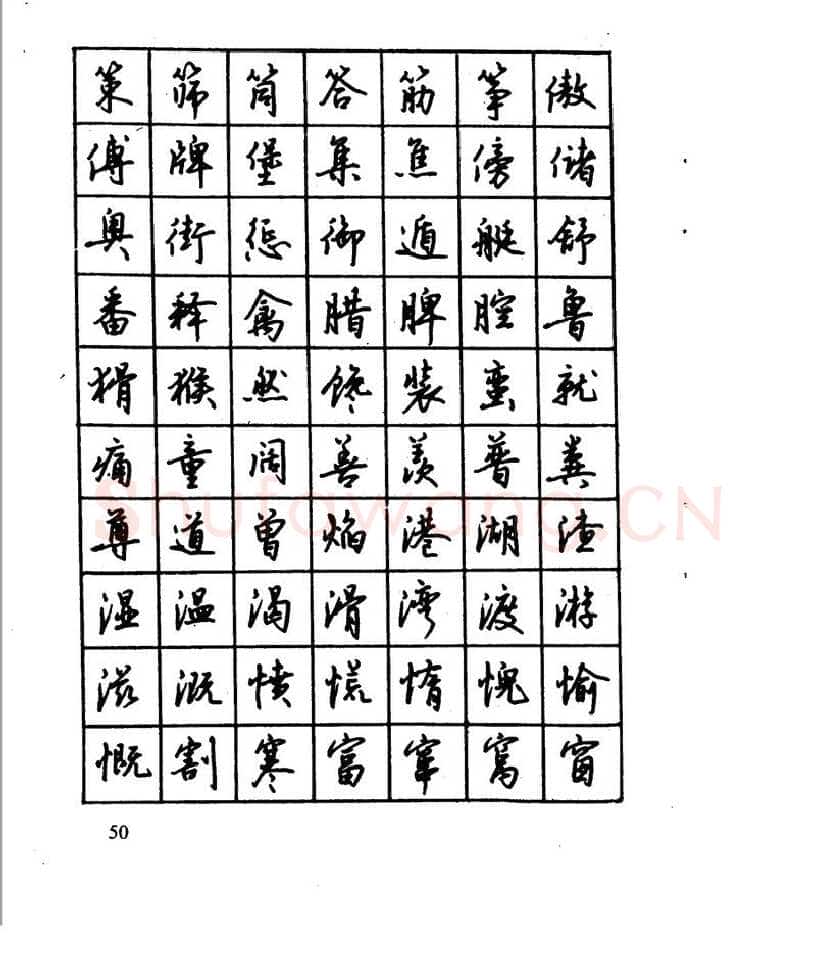 策 筛 筒 答 筋 筝 傲
傅 牌 堡 集 焦 傍 储
奥 街 惩 御 遁 艇 舒
番 释 禽 腊 脾 腔 鲁
猾 猴 然 馋 装 蛮 就
痛 童 阔 善 羡 普 粪
尊 道 曾 焰 港 湖 渣
湿 温 渴 滑 湾 渡 游
滋 溉 愤 慌 惰 愧 愉
慨 割 寒 富 窜 窝 窗
Shufawang.CN
50